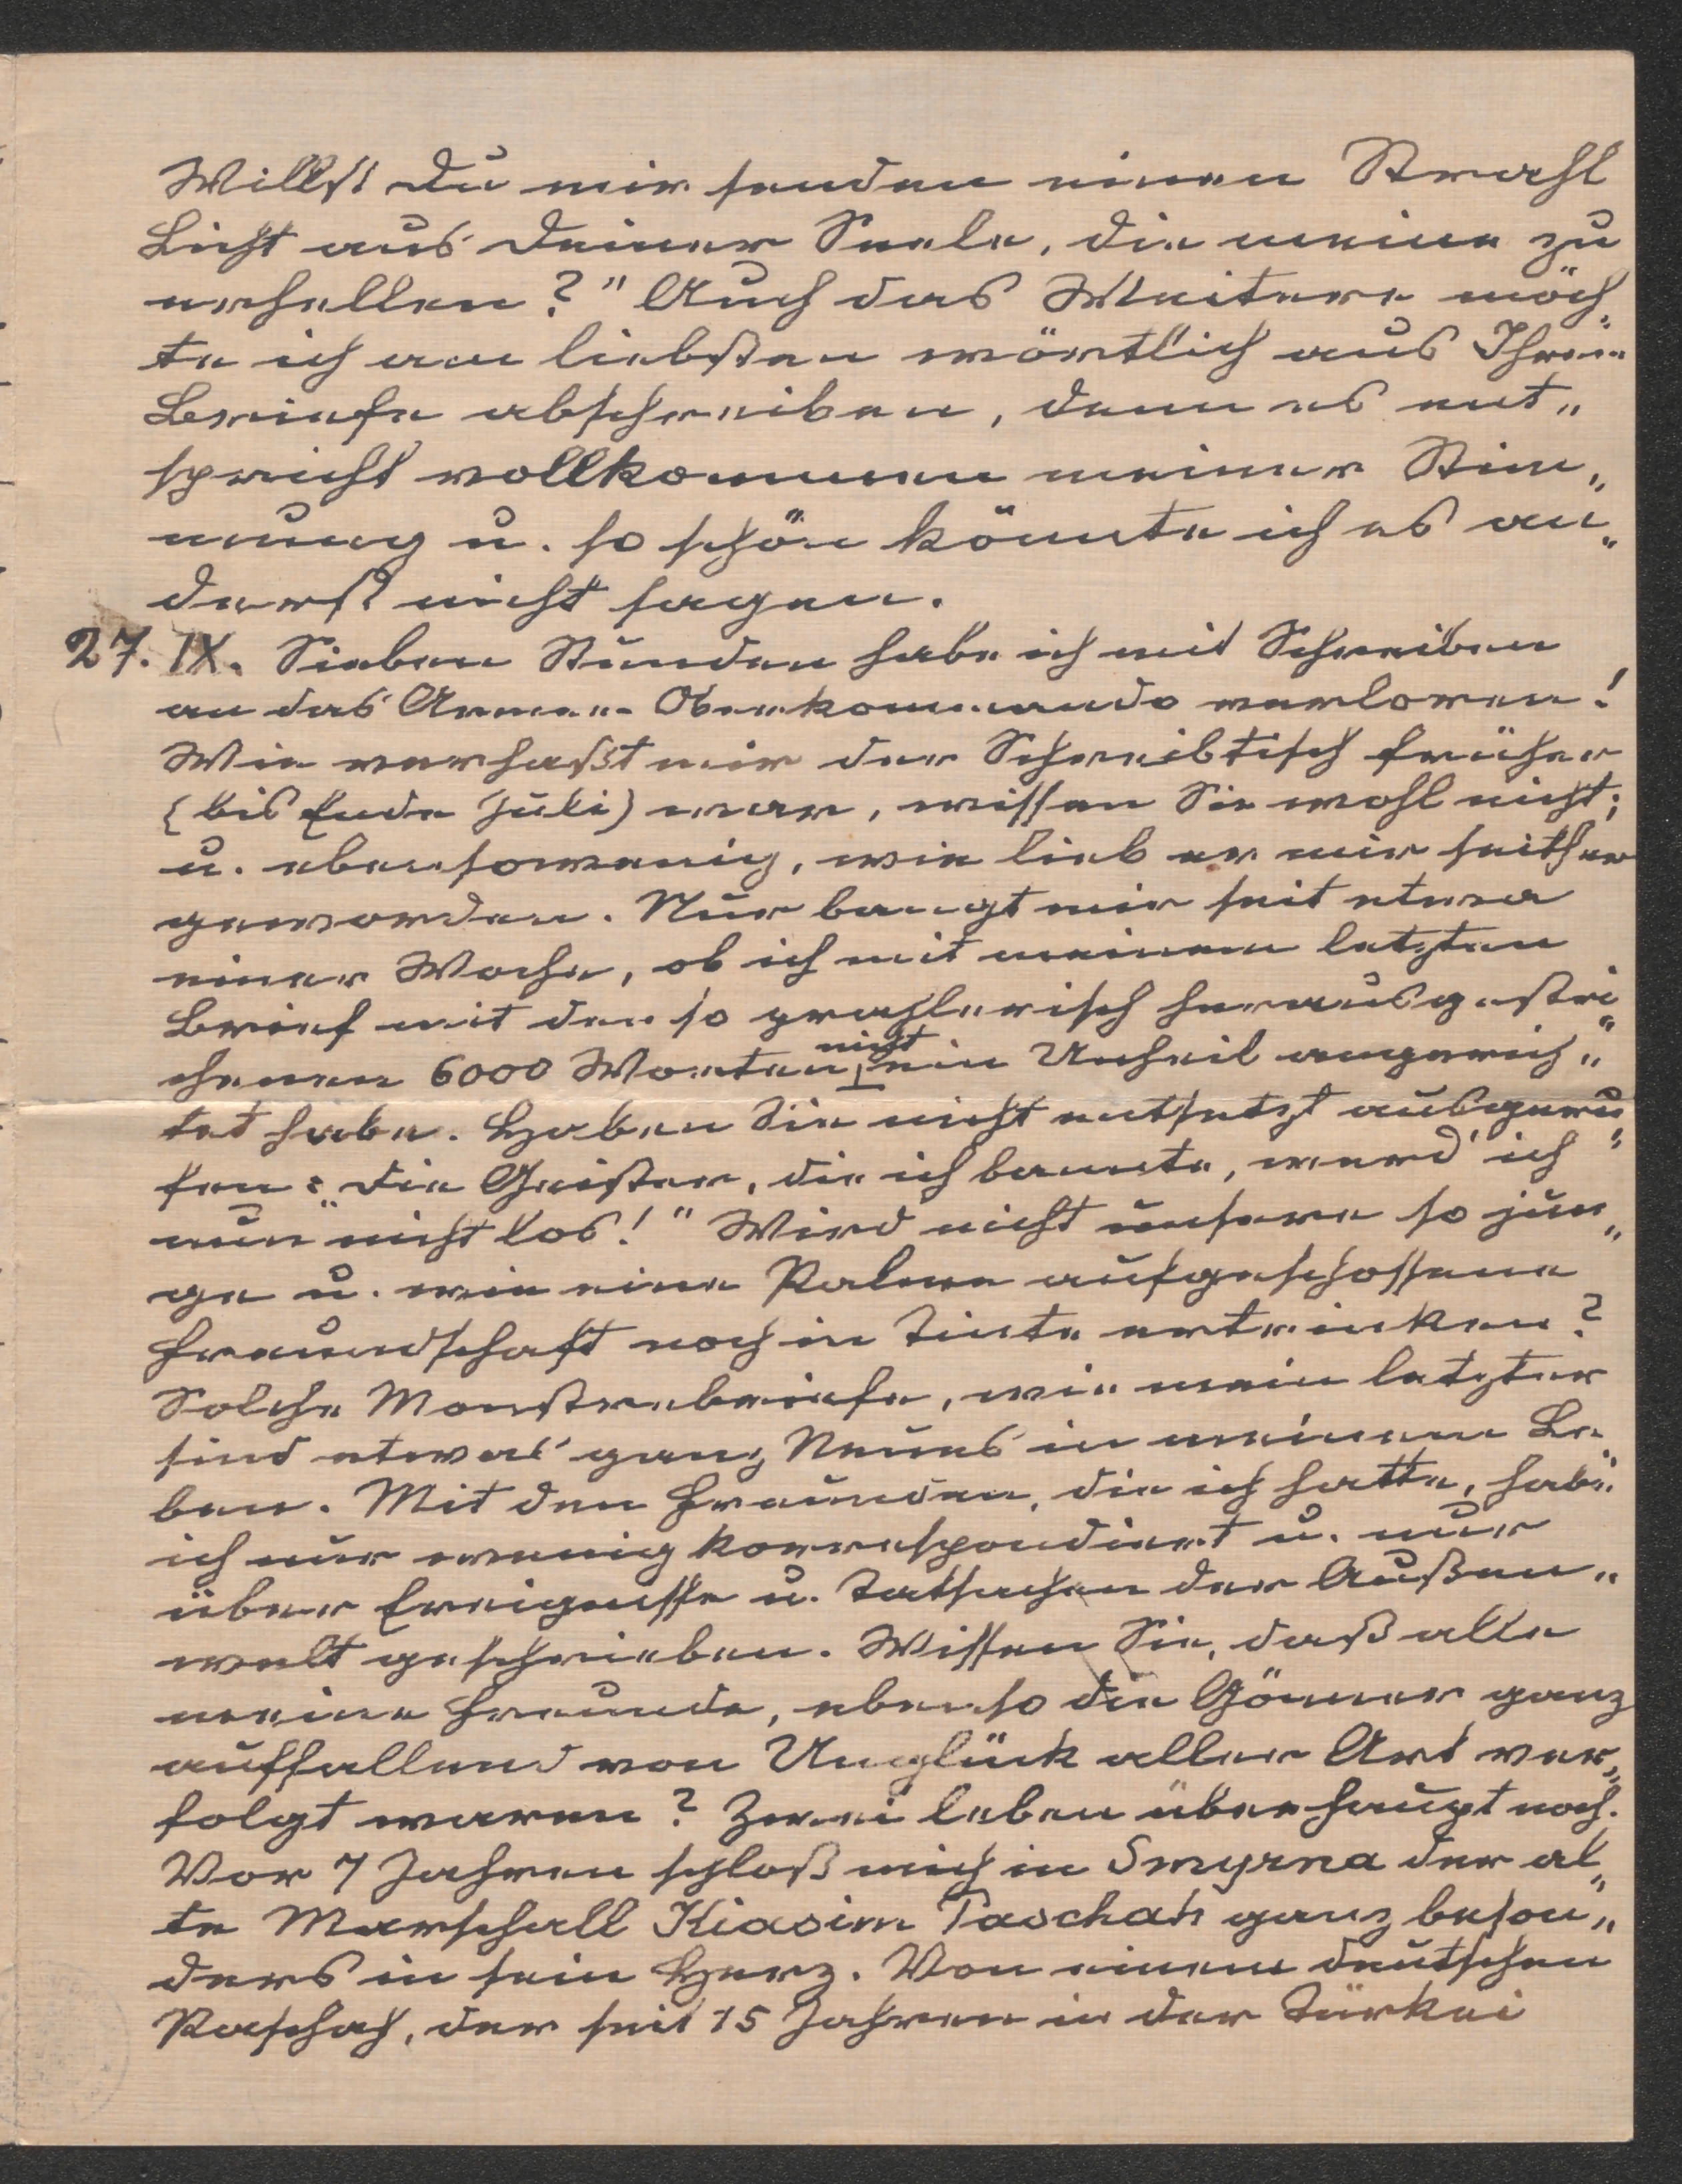 Willst Du mir senden einen Strahl
Licht aus Deiner Seele, die meine zu
erhellen?" Auch das Weitere möch„
te ich am liebsten wörtlich aus Ihrem
Briefe abschreiben, denn es ent„
spricht vollkommen meiner Stim„
mung u. so schön könnte ich es an„
derst nicht sagen.
27. IX. Sieben Stunden habe ich mit Schreiben
an das Armee-Oberkommando verloren!
Wie verhaßt mir der Schreibtisch früher
(bis Ende Juli) war, wissen Sie wohl nicht;
u. ebensowenig, wie lieb er mir seither
geworden. Nur bangt mir seit etwa
einer Woche, ob ich mit meinem letzten
Brief mit den so prahlerisch herausgestri„
chenen 6000 Worten nicht ein Unheil angerich„
tet habe. Haben Sie nicht entsetzt ausgeru„
fen: „Die Geister, die ich bannte, werd' ich
nun nicht los!" Wird nicht unsere so jun„
ge u. wie eine Palme aufgeschossene
Freundschaft noch in Tinte ertrinken?
Solche Monstrebriefe, wie mein letzter
sind etwas ganz Neues in meinem Le„
ben. Mit den Freunden, die ich hatte, habe
ich nur wenig korrespondiert u. nur
über Ereignisse u. Tatsachen der Außen„
welt geschrieben. Wissen Sie, daß alle
meine Freunde, ebenso die Gönner ganz
auffallend von Unglück aller Art ver„
folgt waren? Zwei leben überhaupt noch.
Vor 7 Jahren schloß mich in Smyrna der al„
te Marschall Kiasim Paschah ganz beson„
ders in sein Herz. Von einem deutschen
Paschah, der seit 15 Jahren in der Türkei